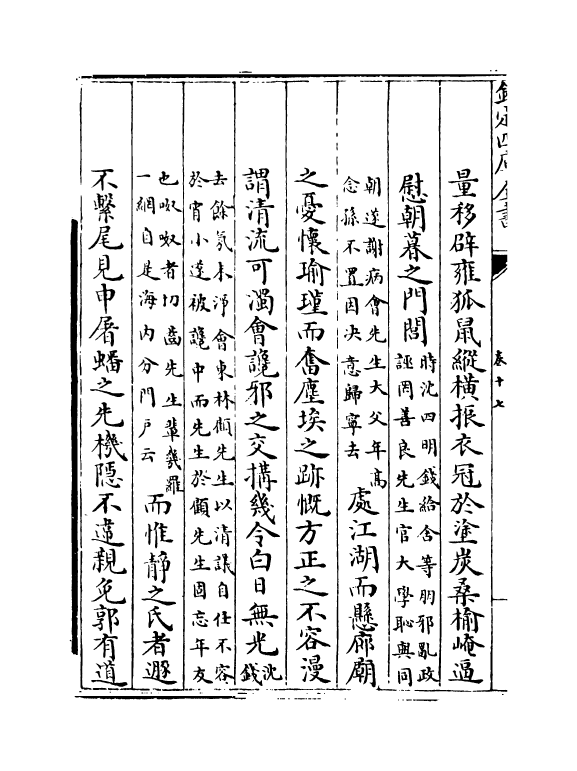 欽定四庫全書
卷十七
量移辟雍狐鼠縱橫振衣冠於塗炭桑榆崦逼
慰朝暮之門閭
時沈四明錢給舍等朋邪亂政
誣罔善良先生官大學恥與同
朝遂謝病會先生大父年高
念孫不置因決意歸寧去
處江湖而懸廊廟
之憂懷瑜瑾而奮塵埃之跡慨方正之不容漫
謂清流可濁會讒邪之交搆幾令白日無光
沈錢
去餘氛未淨會東林顧先生以清議自任不容
於宵小遂被讒中而先生於顧先生固忘年友
也呶呶者切齒先生輩幾罹
一網自是海内分門戶云
而惟靜之氏者遯
不繫尾見申屠蟠之先機隱不違親免郭有道